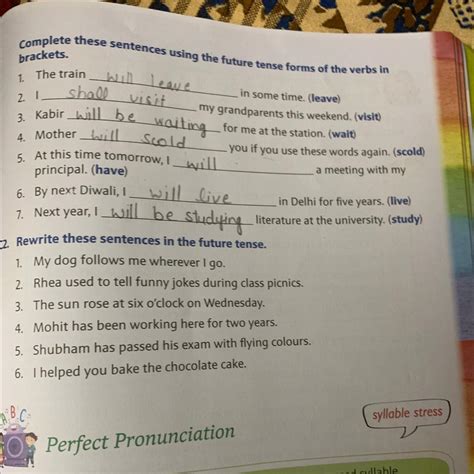 Complete these sentences using the future tense forms of the verbs in
brackets.
1. The train will leave in some time. (leave)
2. I shall visit my grandparents this weekend. (visit)
3. Kabir will be waiting for me at the station. (wait)
4. Mother will scold you if you use these words again. (scold)
5. At this time tomorrow, I will a meeting with my
principal. (have)
6. By next Diwali, I will live in Delhi for five years. (live)
7. Next year, I will be studying literature at the university. (study)
2. Rewrite these sentences in the future tense.
1. My dog follows me wherever I go.
2. Rhea used to tell funny jokes during class picnics.
3. The sun rose at six o'clock on Wednesday.
4. Mohit has been working here for two years.
5. Shubham has passed his exam with flying colours.
6. I helped you bake the chocolate cake.
A B C
syllable stress
Perfect Pronunciation
syllable